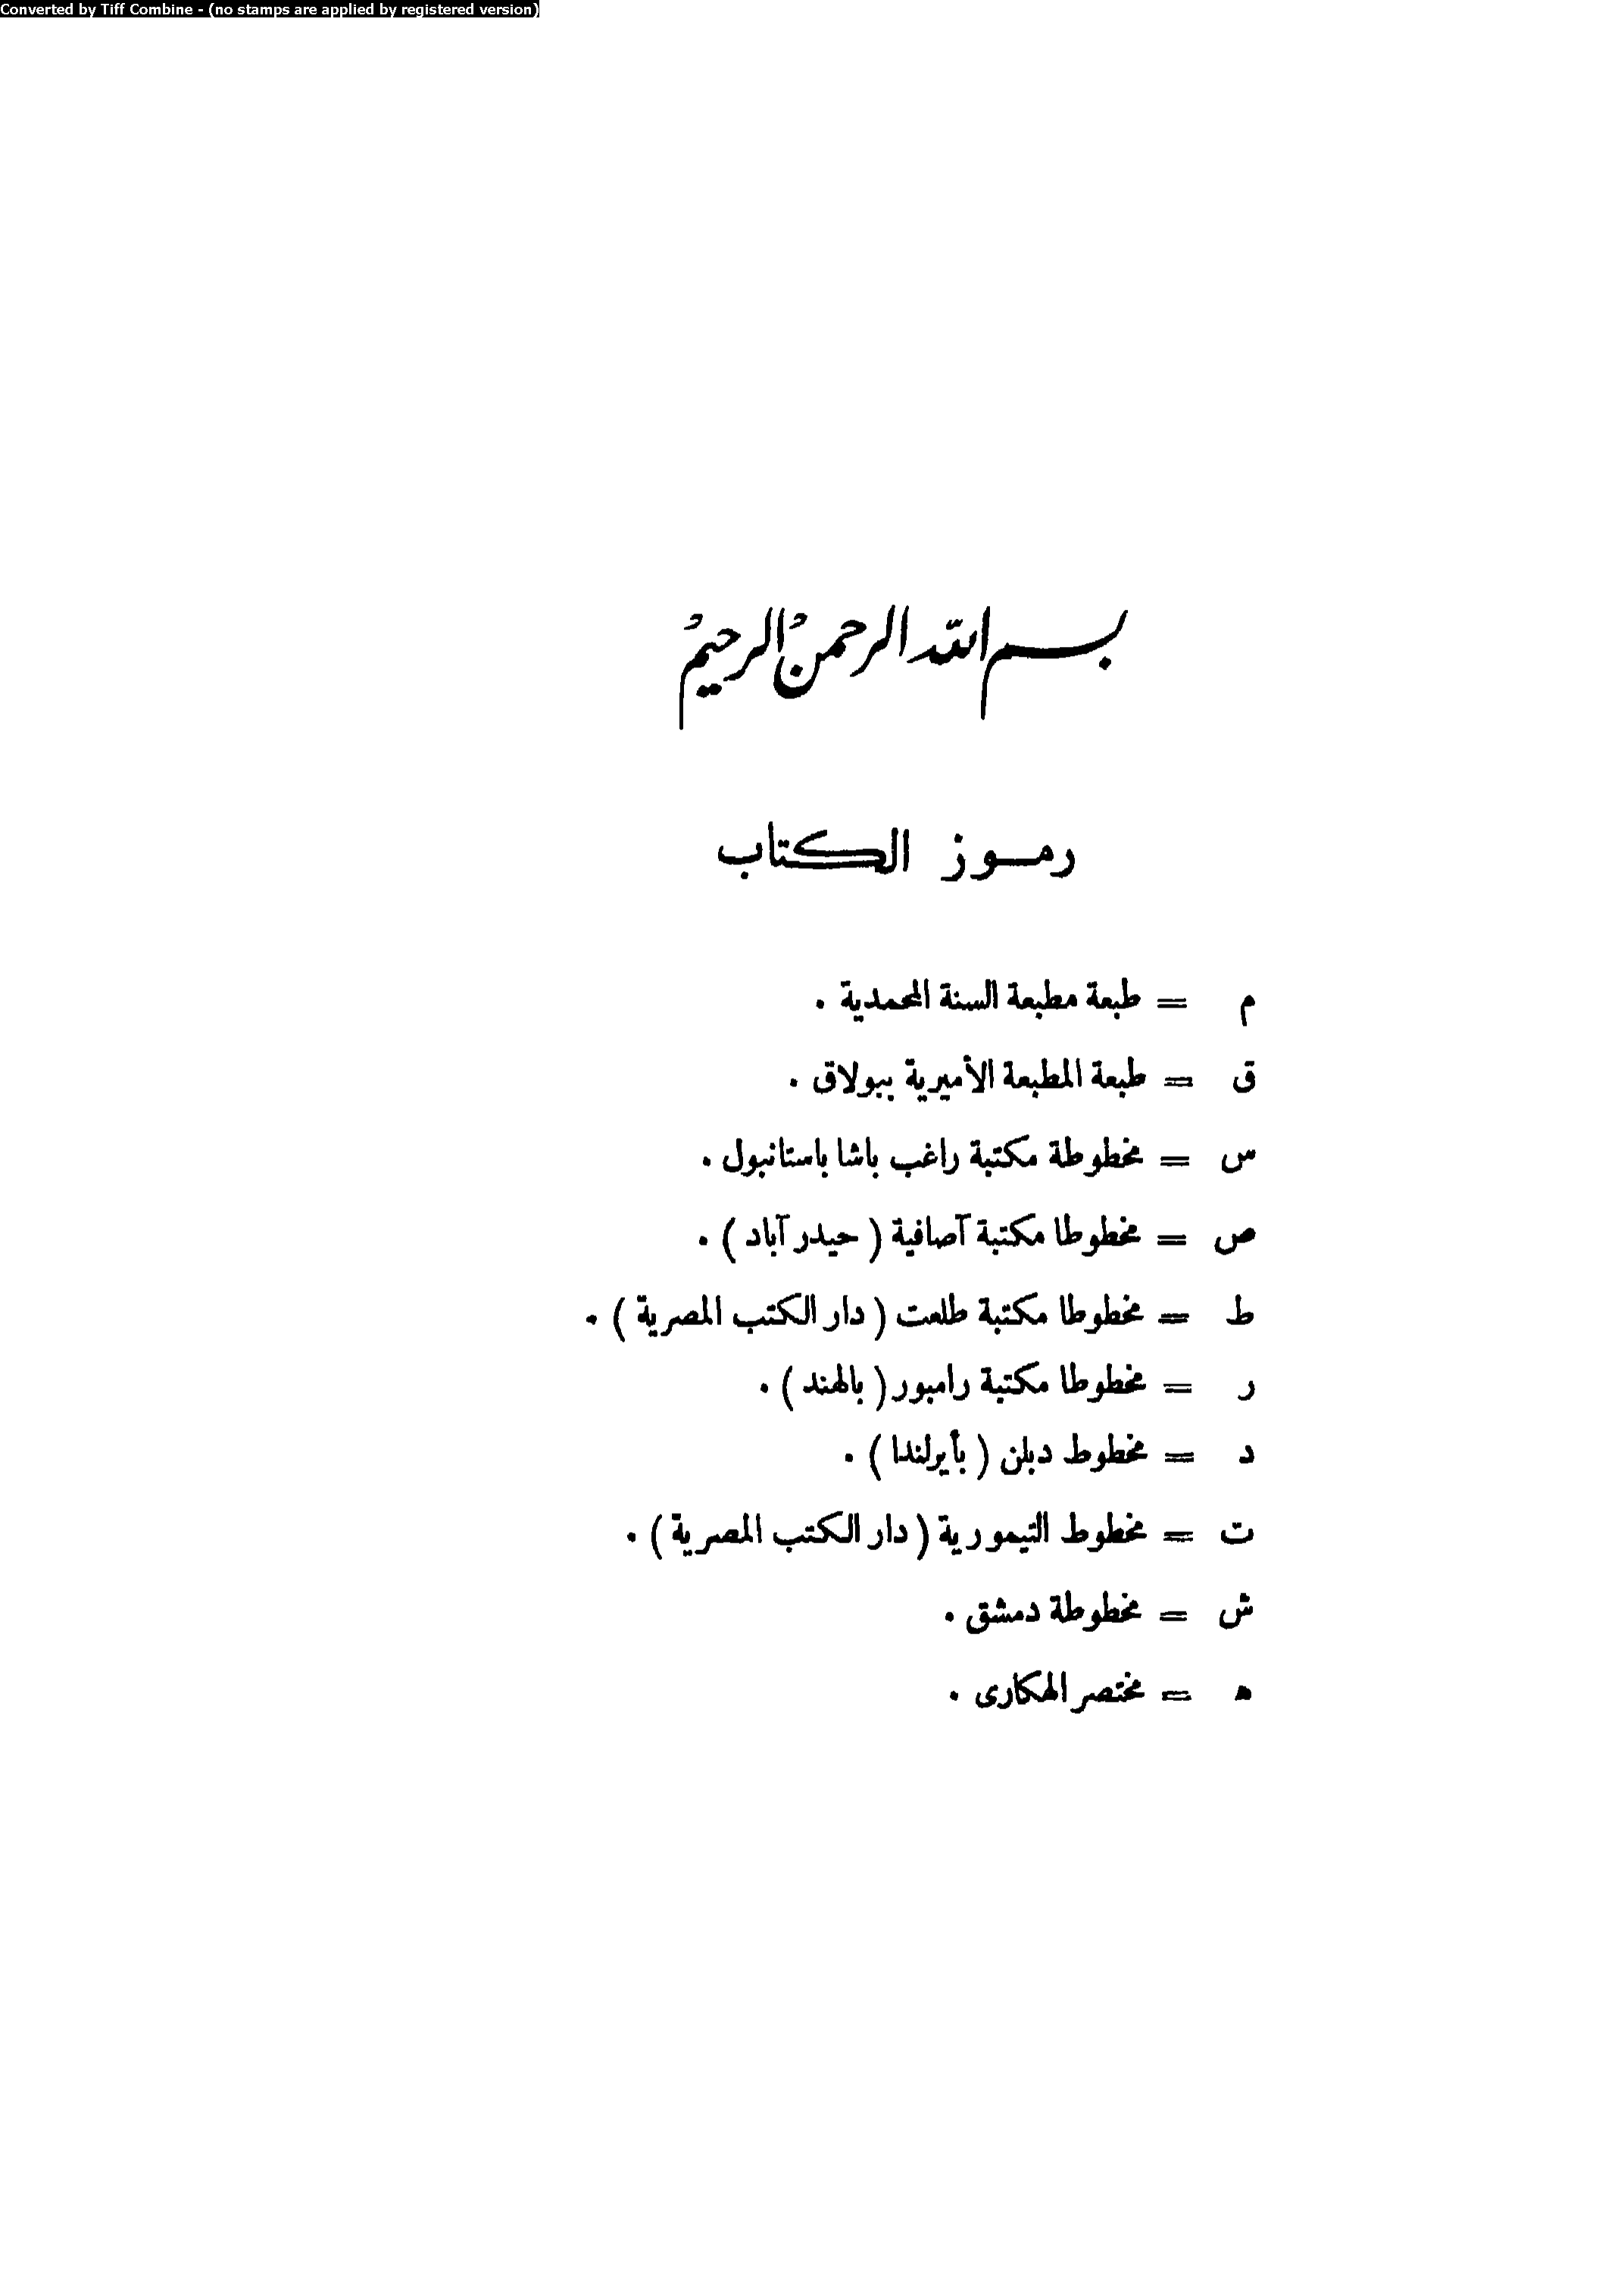 Converted by Tiff Combine - (no stamps are applied by registered version)
بسم الله الرحمن الرحيم
رموز الكتاب
م = طبعة مطبعة السنة المحمدية .
ق = طبعة المطبعة الأميرية ببولاق .
س = مخطوطة مكتبة راغب باشا باستانبول .
ص = مخطوطا مكتبة آصافية ( حيدر آباد ) .
ط = مخطوطا مكتبة طلعت ( دار الكتب المصرية ) .
ر = مخطوطا مكتبة رامبور ( بالهند ) .
د = مخطوط دبلن ( بأيرلندا ) .
ت = مخطوط التيمورية ( دار الكتب المصرية ) .
ش = مخطوطة دمشق .
ه = مختصر الهكارى .